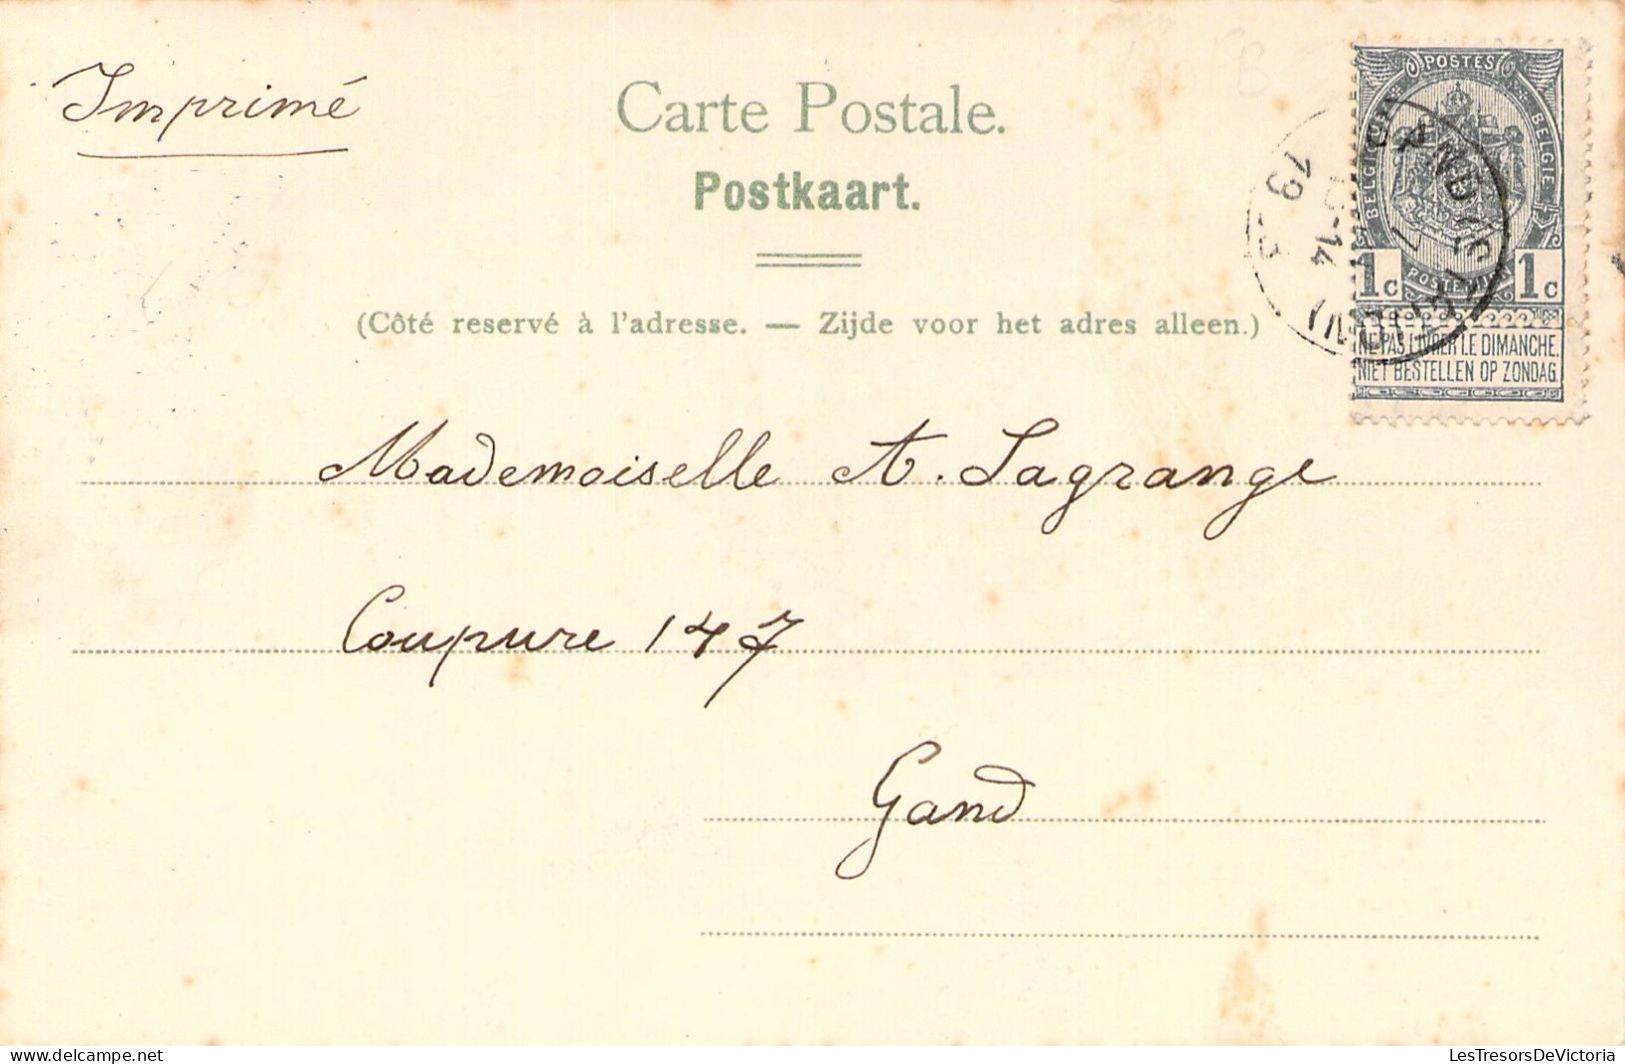 Imprimé
Carte Postale.
Postkaart.
(Côté reservé à l'adresse. — Zijde voor het adres alleen.)
POSTES
BELGIQUE
BELGIE
1c 1c
NE PAS LIVRER LE DIMANCHE.
NIET BESTELLEN OP ZONDAG.
Mademoiselle A. Lagrange
Coupure 147
Gand
LesTresorsDeVictoria